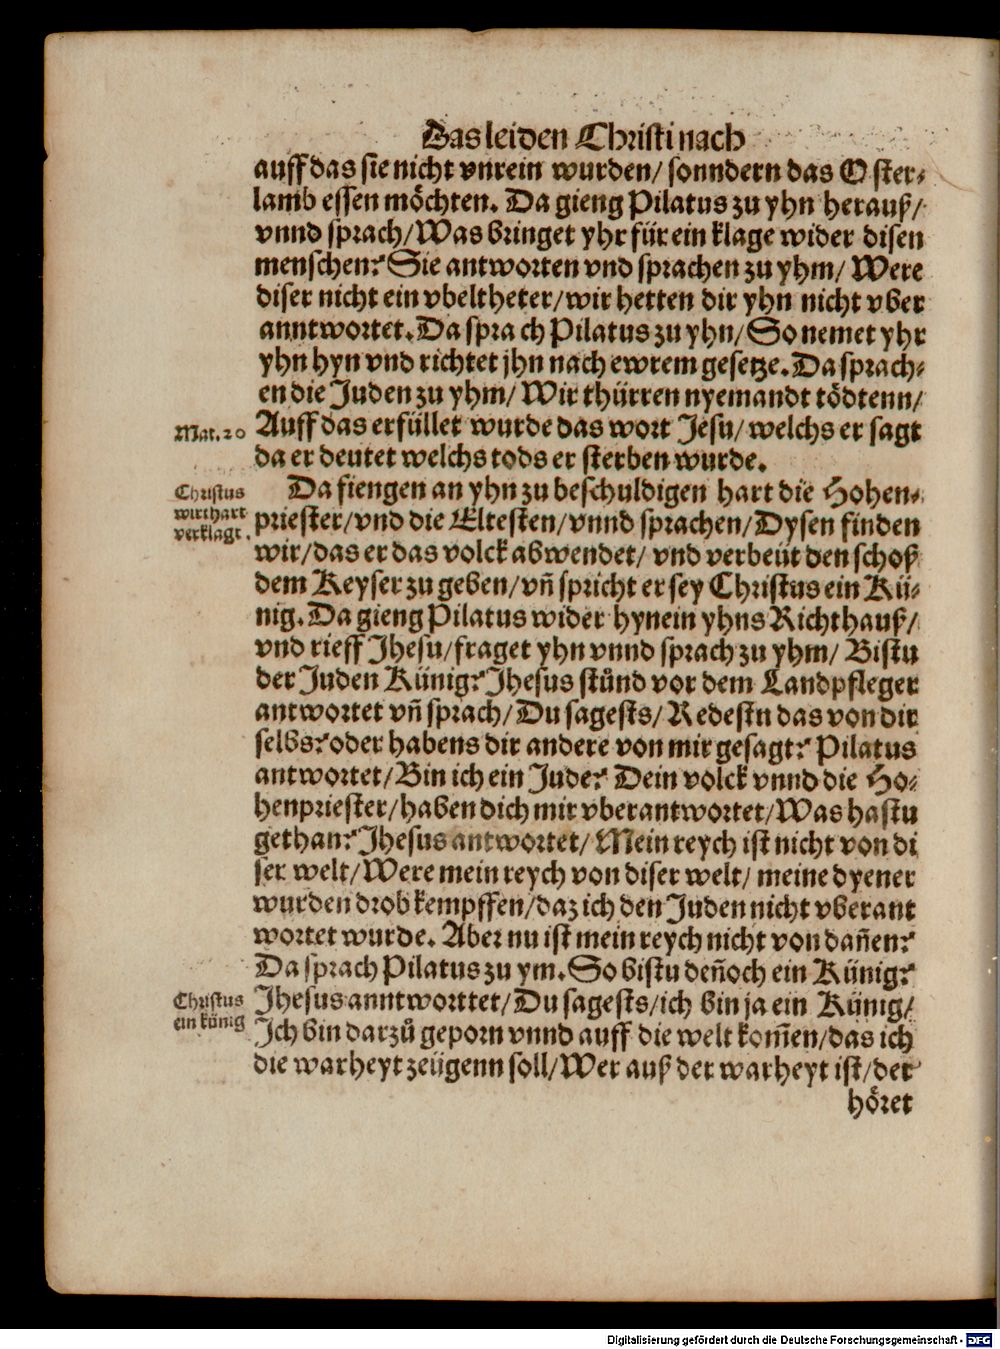 Das leiden Christi nach
auff das sie nicht vnrein wurden/ sonndern das Oster-
lamb essen möchten. Da gieng Pilatus zu yhn herauß/
vnnd sprach/Was bringet yhr für ein klage wider disen
menschen? Sie antworten vnd sprachen zu yhm/ Were
diser nicht ein vbeltheter/wir hetten dir yhn nicht vber
anntwortet. Da sprach Pilatus zu yhn/ So nemet yhr
yhn hyn vnd richtet jhn nach ewrem gesetze. Da sprach-
en die Juden zu yhm/ Wir thürren nyemandt tödtenn/
Mat. 20
Auff das erfüllet wurde das wort Jesu/ welchs er sagt
da er deutet welchs tods er sterben wurde.
Christus
wirt hart
verklagt.
Da fiengen an yhn zu beschuldigen hart die Hohen-
priester/vnd die Eltesten/vnnd sprachen/Dysen finden
wir/das er das volck abwendet/ vnd verbeüt den schoß
dem Keyser zu geben/vn̄ spricht er sey Christus ein Kü-
nig. Da gieng Pilatus wider hynein yhns Richthauß/
vnd rieff Jhesu/fraget yhn vnnd sprach zu yhm/ Bistu
der Juden Künig? Jhesus stůnd vor dem Landpfleger
antwortet vn̄ sprach/Du sagests/ Redestu das von dir
selbs? oder habens dir andere von mir gesagt? Pilatus
antwortet/Bin ich ein Jude? Dein volck vnnd die Ho-
henpriester/haben dich mir vberantwortet/Was hastu
gethan? Jhesus antwortet/ Mein reych ist nicht von di
ser welt/Were mein reych von diser welt/ meine dyener
wurden drob kempffen/daz ich den Juden nicht vberant
wortet wurde. Aber nu ist mein reych nicht von dan̄en?
Da sprach Pilatus zu ym. So bistu den̄och ein Künig?
Christus
ein künig
Jhesus anntworttet/Du sagests/ich bin ja ein Künig/
Ich bin darzů geporn vnnd auff die welt kom̄en/das ich
die warheyt zeügenn soll/Wer auß der warheyt ist/der
höret
Digitalisierung gefördert durch die Deutsche Forschungsgemeinschaft - DFG